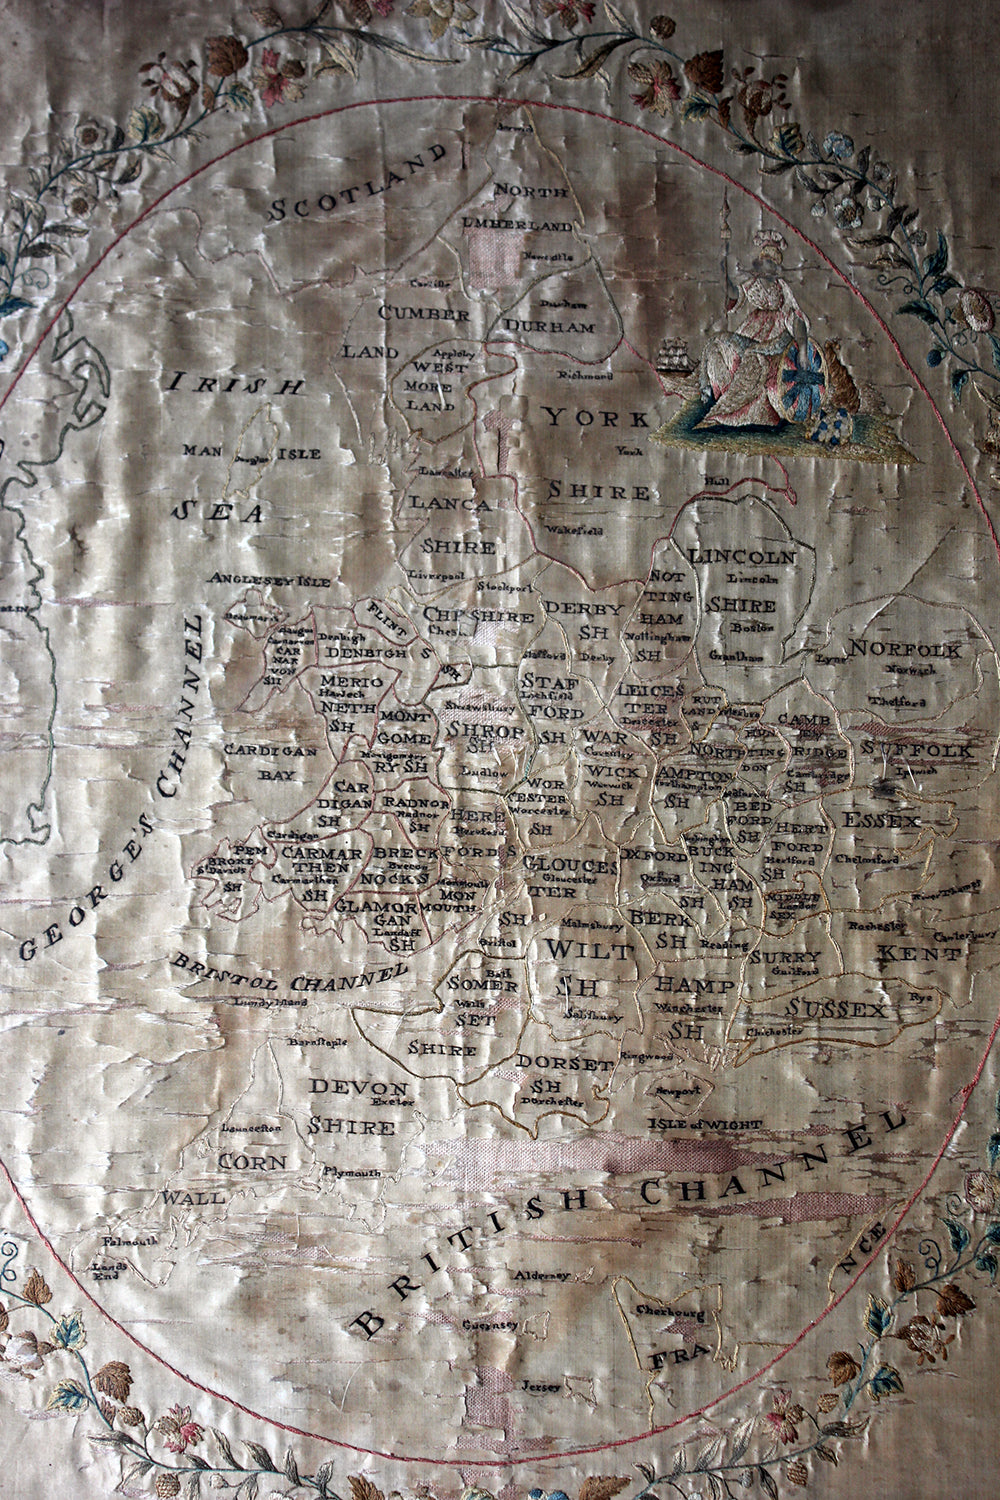 Berwick
SCOTLAND
NORTH
UMBERLAND
Newcastle
Carlisle
Durham
CUMBER
DURHAM
LAND
Appleby
WEST
MORE
LAND
Richmond
IRISH
YORK
York
MAN
Douglas
ISLE
Lancaster
Hull
SHIRE
LANCA
SEA
Wakefield
SHIRE
LINCOLN
Lincoln
SHIRE
Boston
Grantham
ANGLESEY ISLE
Beaumaris
Liverpool
Stockport
NOT
TING
HAM
Nottingham
SH
FLINT
SH
CHESHIRE
DERBY
SH
Derby
Denbigh
DENBIGH
S
CAR
NAR
VON
SH
Lynn
NORFOLK
Norwich
Thetford
GEORGE'S CHANNEL
MERIO
Harlech
NETH
SH
Stafford
STAF
Lichfield
FORD
SH
LEICES
TER
Leicester
SH
RUT
LAND
MONT
GOME
Montgomery
RY SH
Shrewsbury
SHROP
SH
Ludlow
WAR
Coventry
WICK
Warwick
SH
NORTH
AMPTON
Northampton
SH
HUN
TING
DON
CAMB
RIDGE
Cambridge
SH
SUFFOLK
Ipswich
CARDIGAN
BAY
CAR
DIGAN
SH
Cardigan
RADNOR
Radnor
SH
HERE
Hereford
FORD S
WOR
CESTER
Worcester
SH
BED
FORD
SH
HERT
FORD
Hertford
SH
ESSEX
Chelmsford
PEM
BROKE
St Davids
SH
CARMAR
THEN
Carmarthen
SH
BRECK
Brecon
NOCK S
GLOUCES
Gloucester
TER
SH
OXFORD
Oxford
SH
BUCK
ING
HAM
SH
MIDDLE
London
SEX
River Thames
GLAMOR
GAN
Landaff
SH
Monmouth
MON
MOUTH
Malmsbury
BERK
SH
Reading
Rochester
Canterbury
KENT
Bristol
WILT
SH
Salisbury
SURRY
Guilford
BRISTOL CHANNEL
Lundy Island
Bath
SOMER
Wells
SET
SHIRE
HAMP
Winchester
SH
SUSSEX
Rye
Chichester
Barnstaple
DORSET
SH
Dorchester
Ringwood
DEVON
Exeter
SHIRE
Newport
ISLE of WIGHT
Launceston
CORN
WALL
Plymouth
BRITISH CHANNEL
Falmouth
Lands
End
Alderney
Guernsey
Jersey
Cherbourg
FRA
NCE